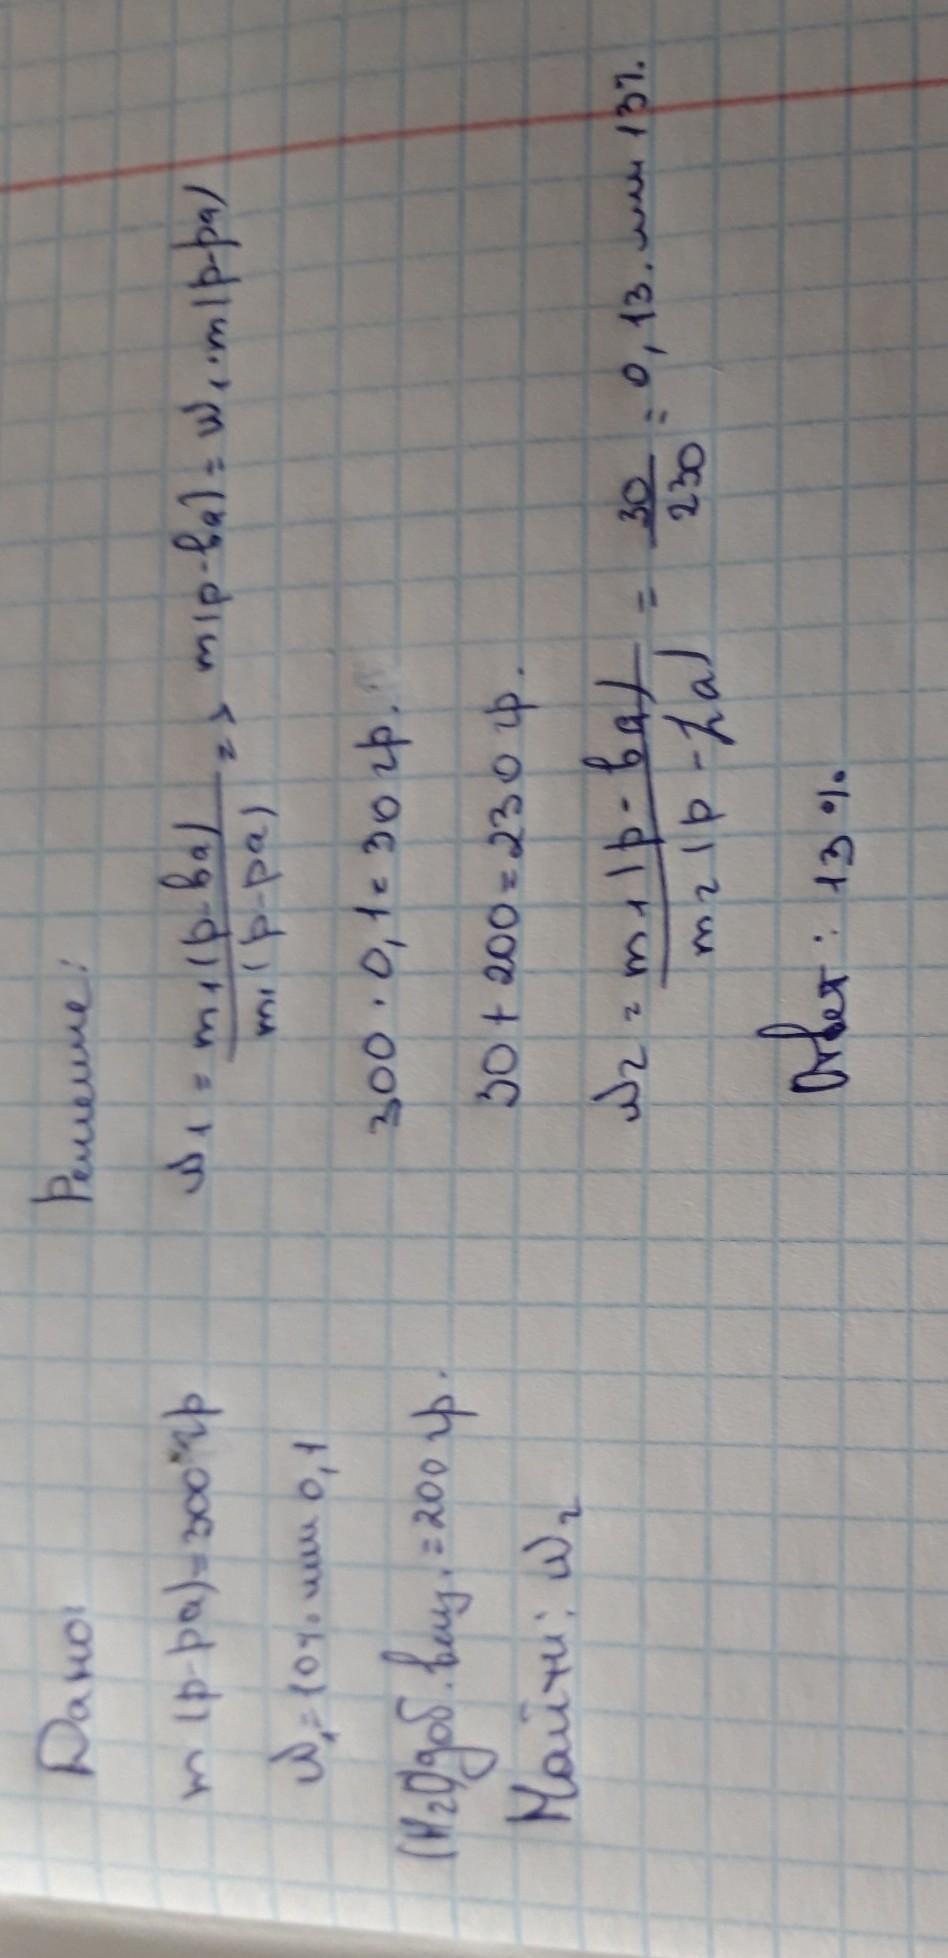 Дано:
m (р-ра)=300 гр
W₁=10% или 0,1
(H₂O)доб. вещ.=200 гр.
Найти: W₂
Решение:
W₁ = m₁(р-ва)/m₁(р-ра) => m(р-ва) = W₁·m(р-ра)
300 · 0,1 = 30 гр.
30 + 200 = 230 гр.
W₂ = m₁(р-ва)/m₂(р-ра) = 30/230 = 0,13. или 13%.
Ответ: 13%